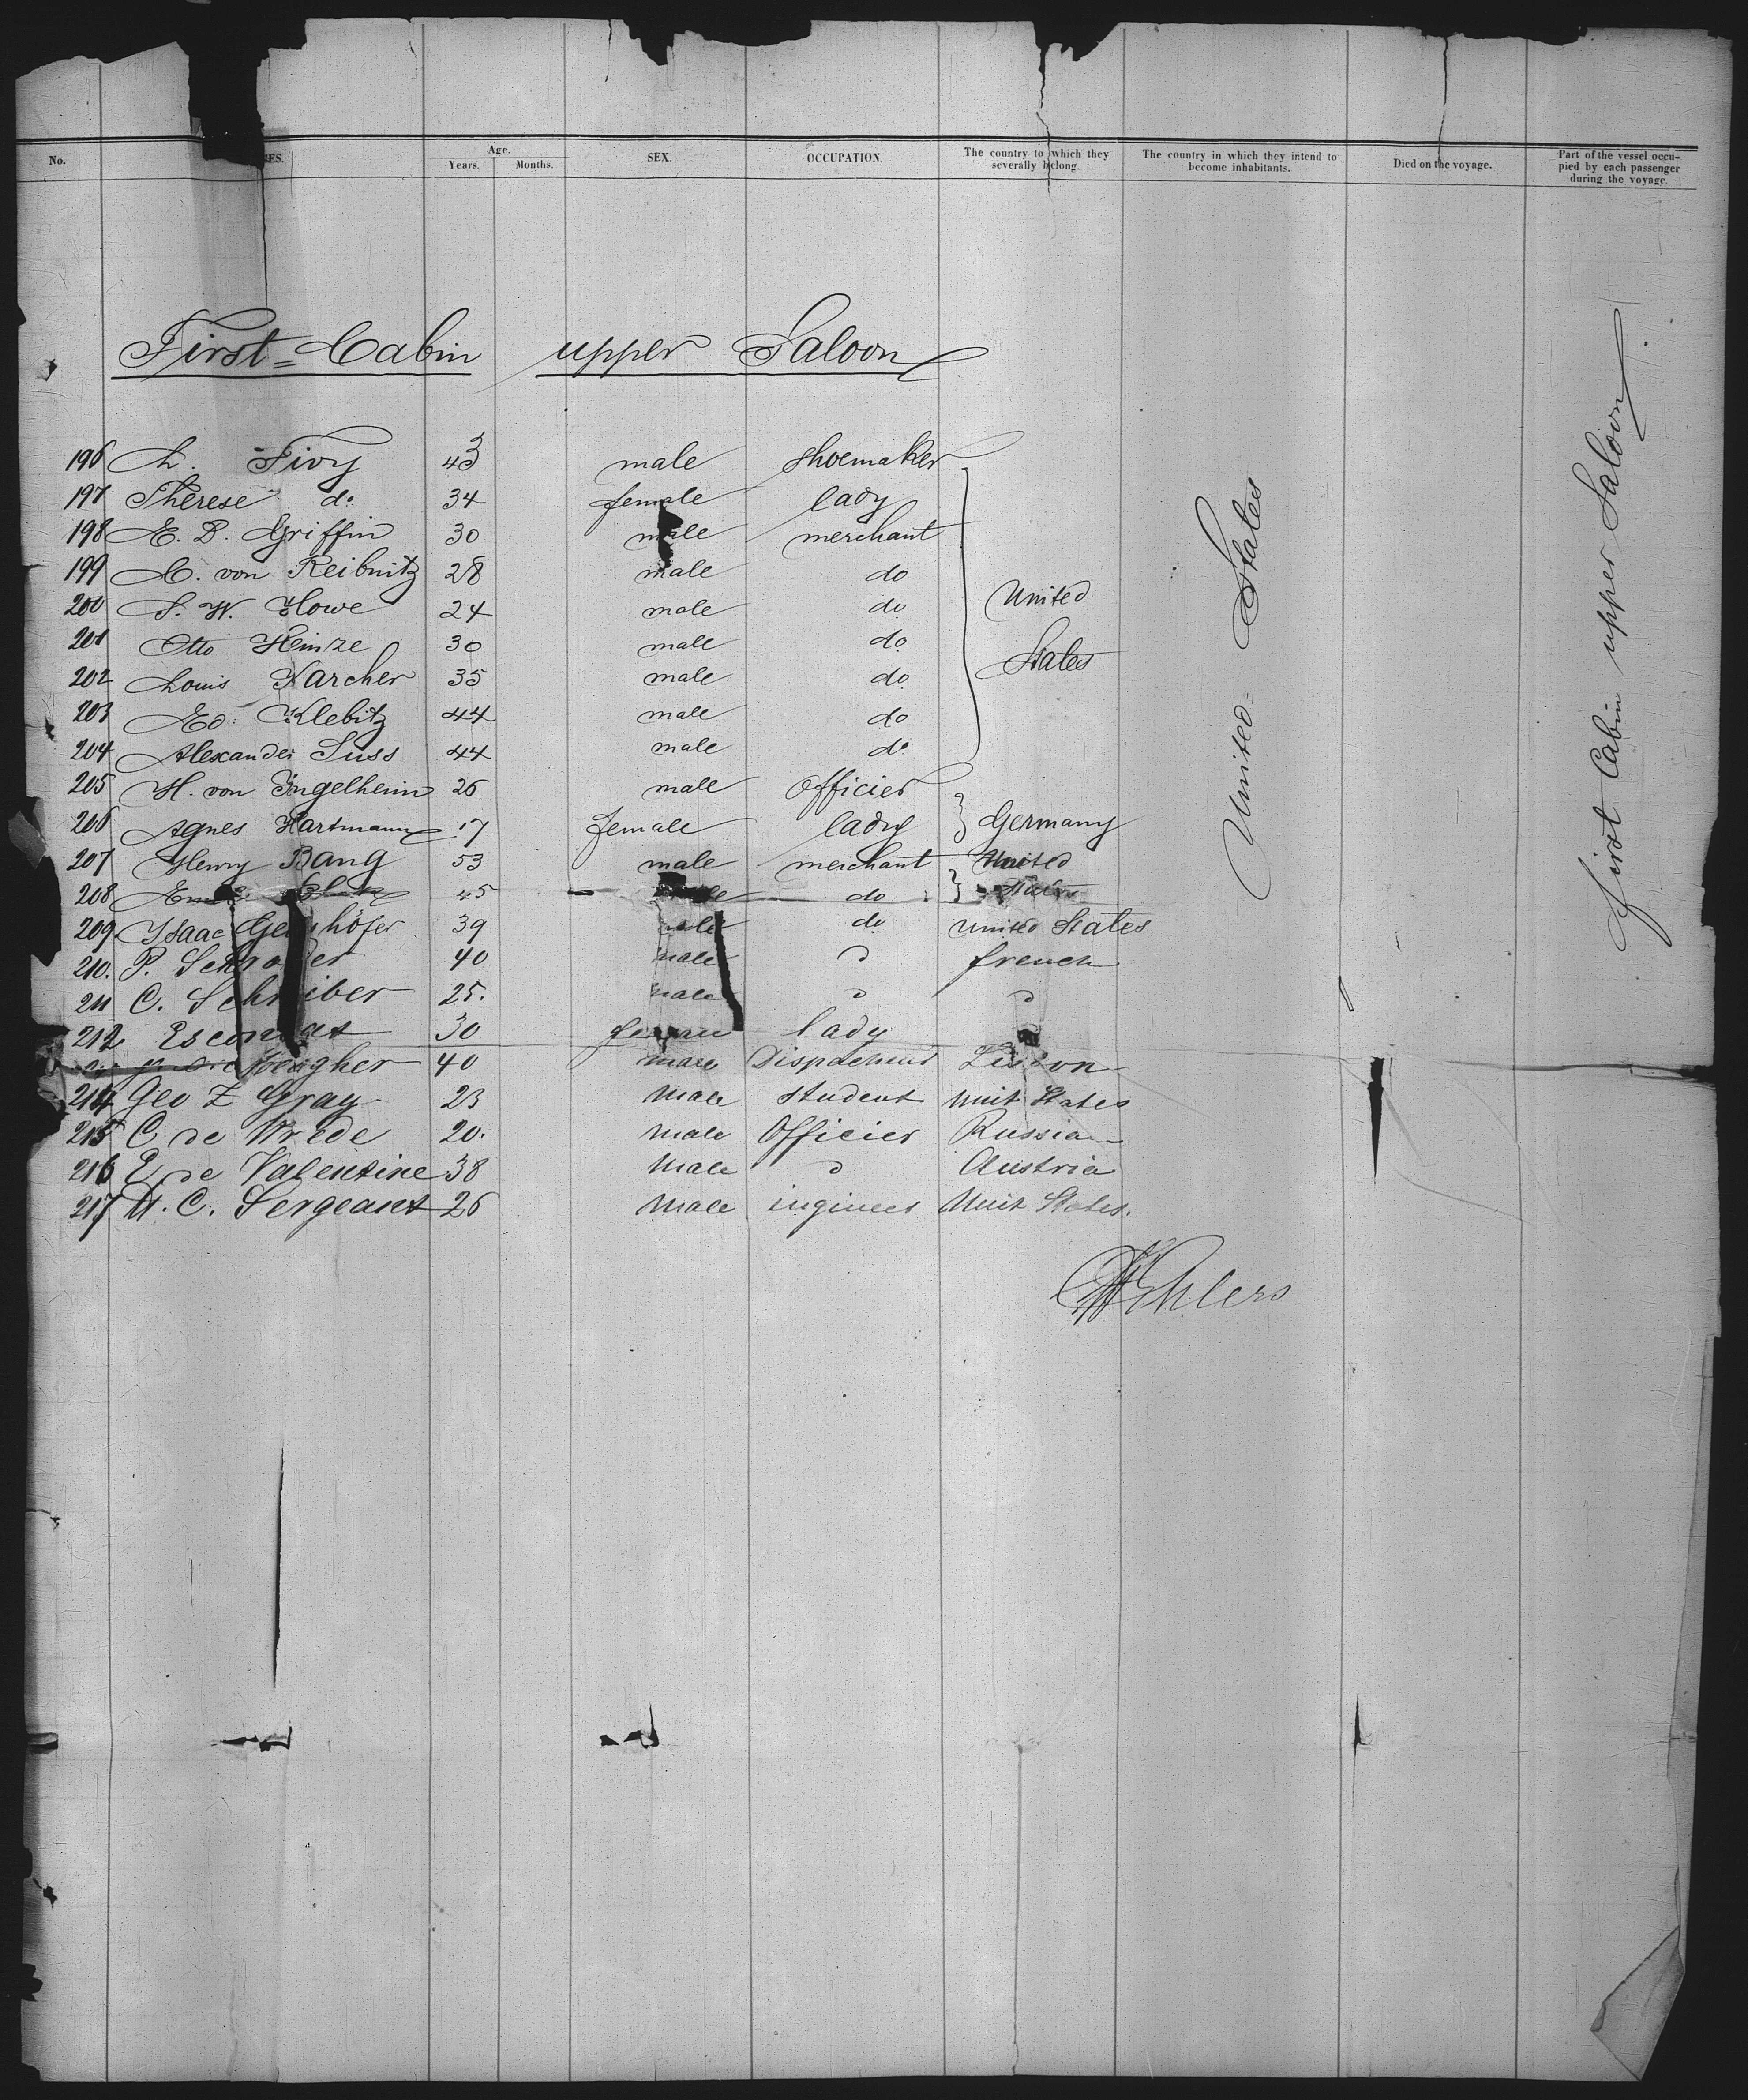 No. Age. Years. Months. SEX. OCCUPATION. The country to which they severally belong. The country in which they intend to become inhabitants. Died on the voyage. Part of the vessel occupied by each passenger during the voyage.
First=Cabin upper Saloon
196 L. Fivy 43 male shoemaker
197 Therese do 34 female lady
198 E. D. Griffin 30 male merchant
199 C. von Reibnitz 28 male do
200 S. W. Howe 24 male do United
201 Otto Heinze 30 male do
202 Louis Karcher 35 male do States
203 Ed: Klebitz 44 male do
204 Alexander Suss 44 male do
205 H. von Ingelheim 26 male Officier
206 Agnes Hartmann 17 female lady Germany
207 Henry Bang 53 male merchant United
208 45 do States
209 Isaac 39 male do United States
210. P. 40 male french
211 C. Schreiber 25. male
212 30 lady
40 male
214 Geo Z Gray 23 Male student Unit States
215 C de Wrede 20. Male Officier Russia
216 E de Valentine 38 Male Austria
217 C. Sergeant 26 Male ingineer Unit States.
Ehlers
United States
First Cabin upper Saloon